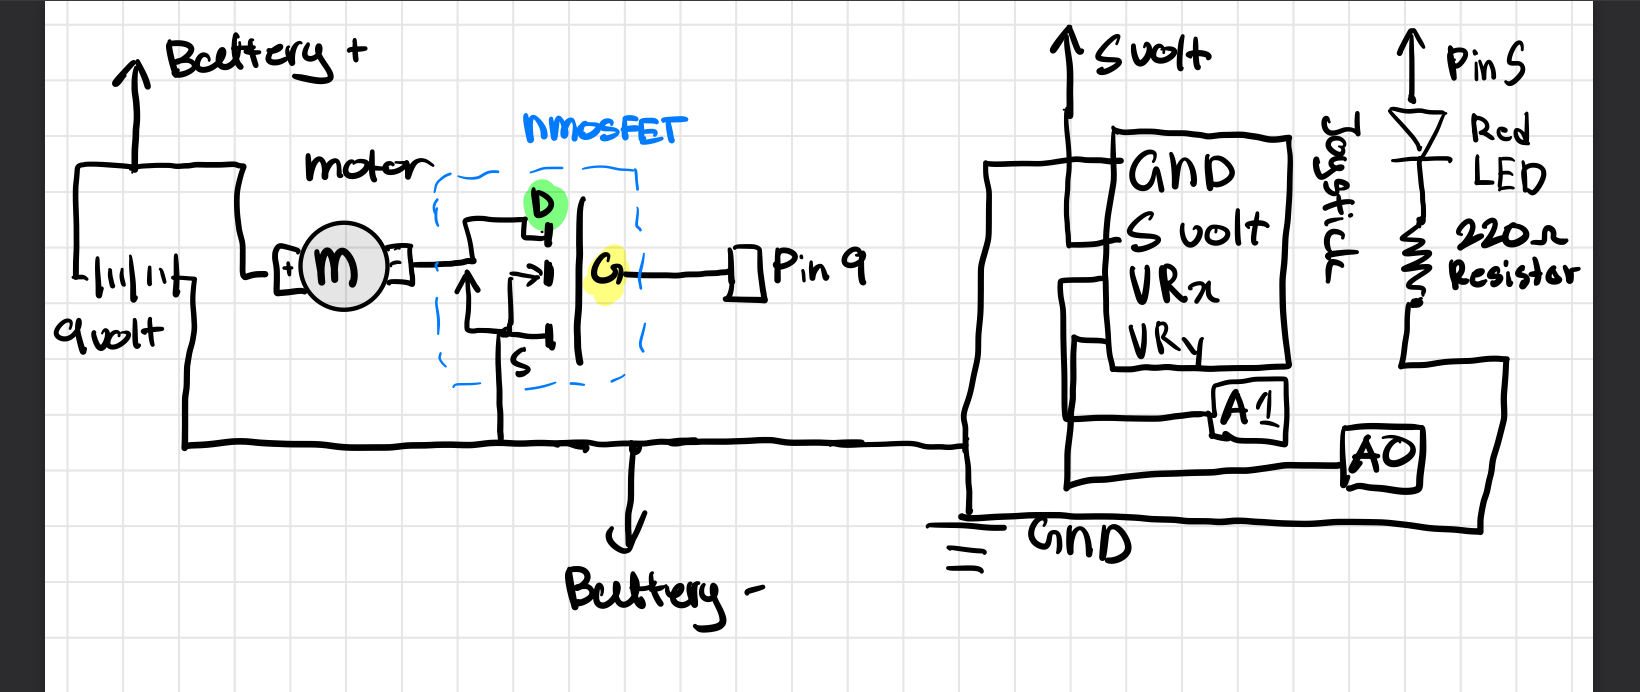 Battery +
9volt
motor
+
m
-
nmosFET
D
G
S
Pin 9
Battery -
5 volt
GND
5 volt
VRx
VRy
Joystick
A1
A0
GND
Pin 5
Red
LED
220Ω
Resistor